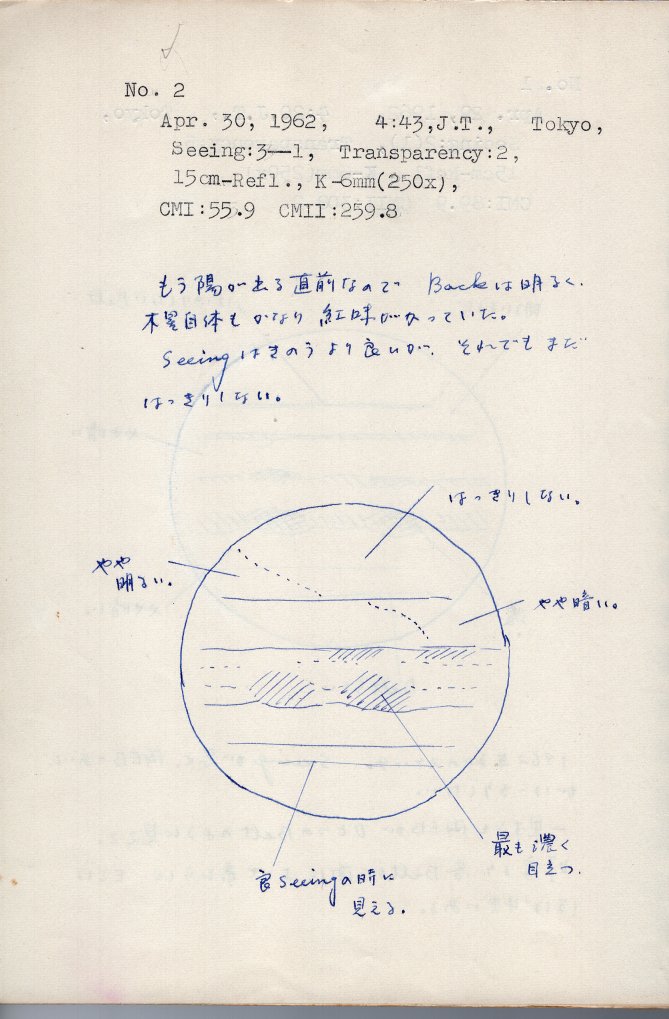 No. 2
Apr. 30, 1962, 4:43,J.T., Tokyo,
Seeing:3—1, Transparency:2,
15cm-Refl., K-6mm(250x),
CMI:55.9 CMII:259.8
もう陽が出る直前なので Backは明るく、
木星自体もかなり紅味がかっていた。
Seeingはきのうより良いが、それでもまだ
はっきりしない。
はっきりしない。
やや
明るい。
やや暗い。
最も濃く
目立つ。
良Seeingの時に
見える。